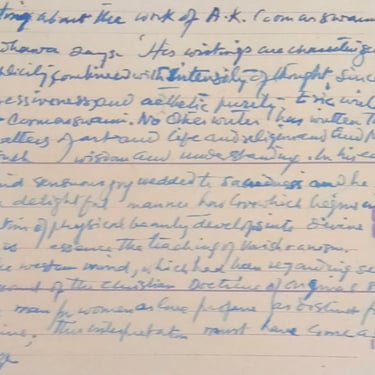 ting about the work of A.K. Coomaraswam
says. "His writings are characterize
plicity combined with intensity of thought, since
ressiveness and aesthetic purity. Eric
Coomaraswami. No other writer has written t
atters of art and life and religion and
wisdom and understanding. In his
nd sensuous joy wedded to sacredness and he
delightful manner has love which begins
tion of physical beauty develops into divine
is essence the teaching of Vaishnavism.
he western mind, which had been regarding se
of the Christian Doctrine of original S
man for woman as love profane as distinct f
this interpretation must have come a